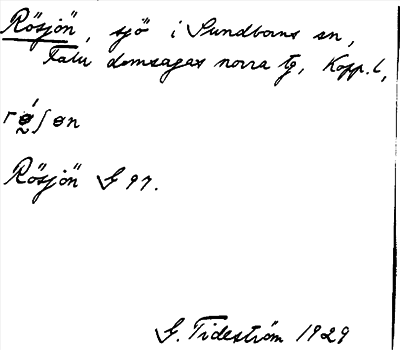 Rösjön, sjö i Sundborns sn,
Falu domsagas norra tg, Kopp. l,
Rösjön G 97.
G. Tideström 1929